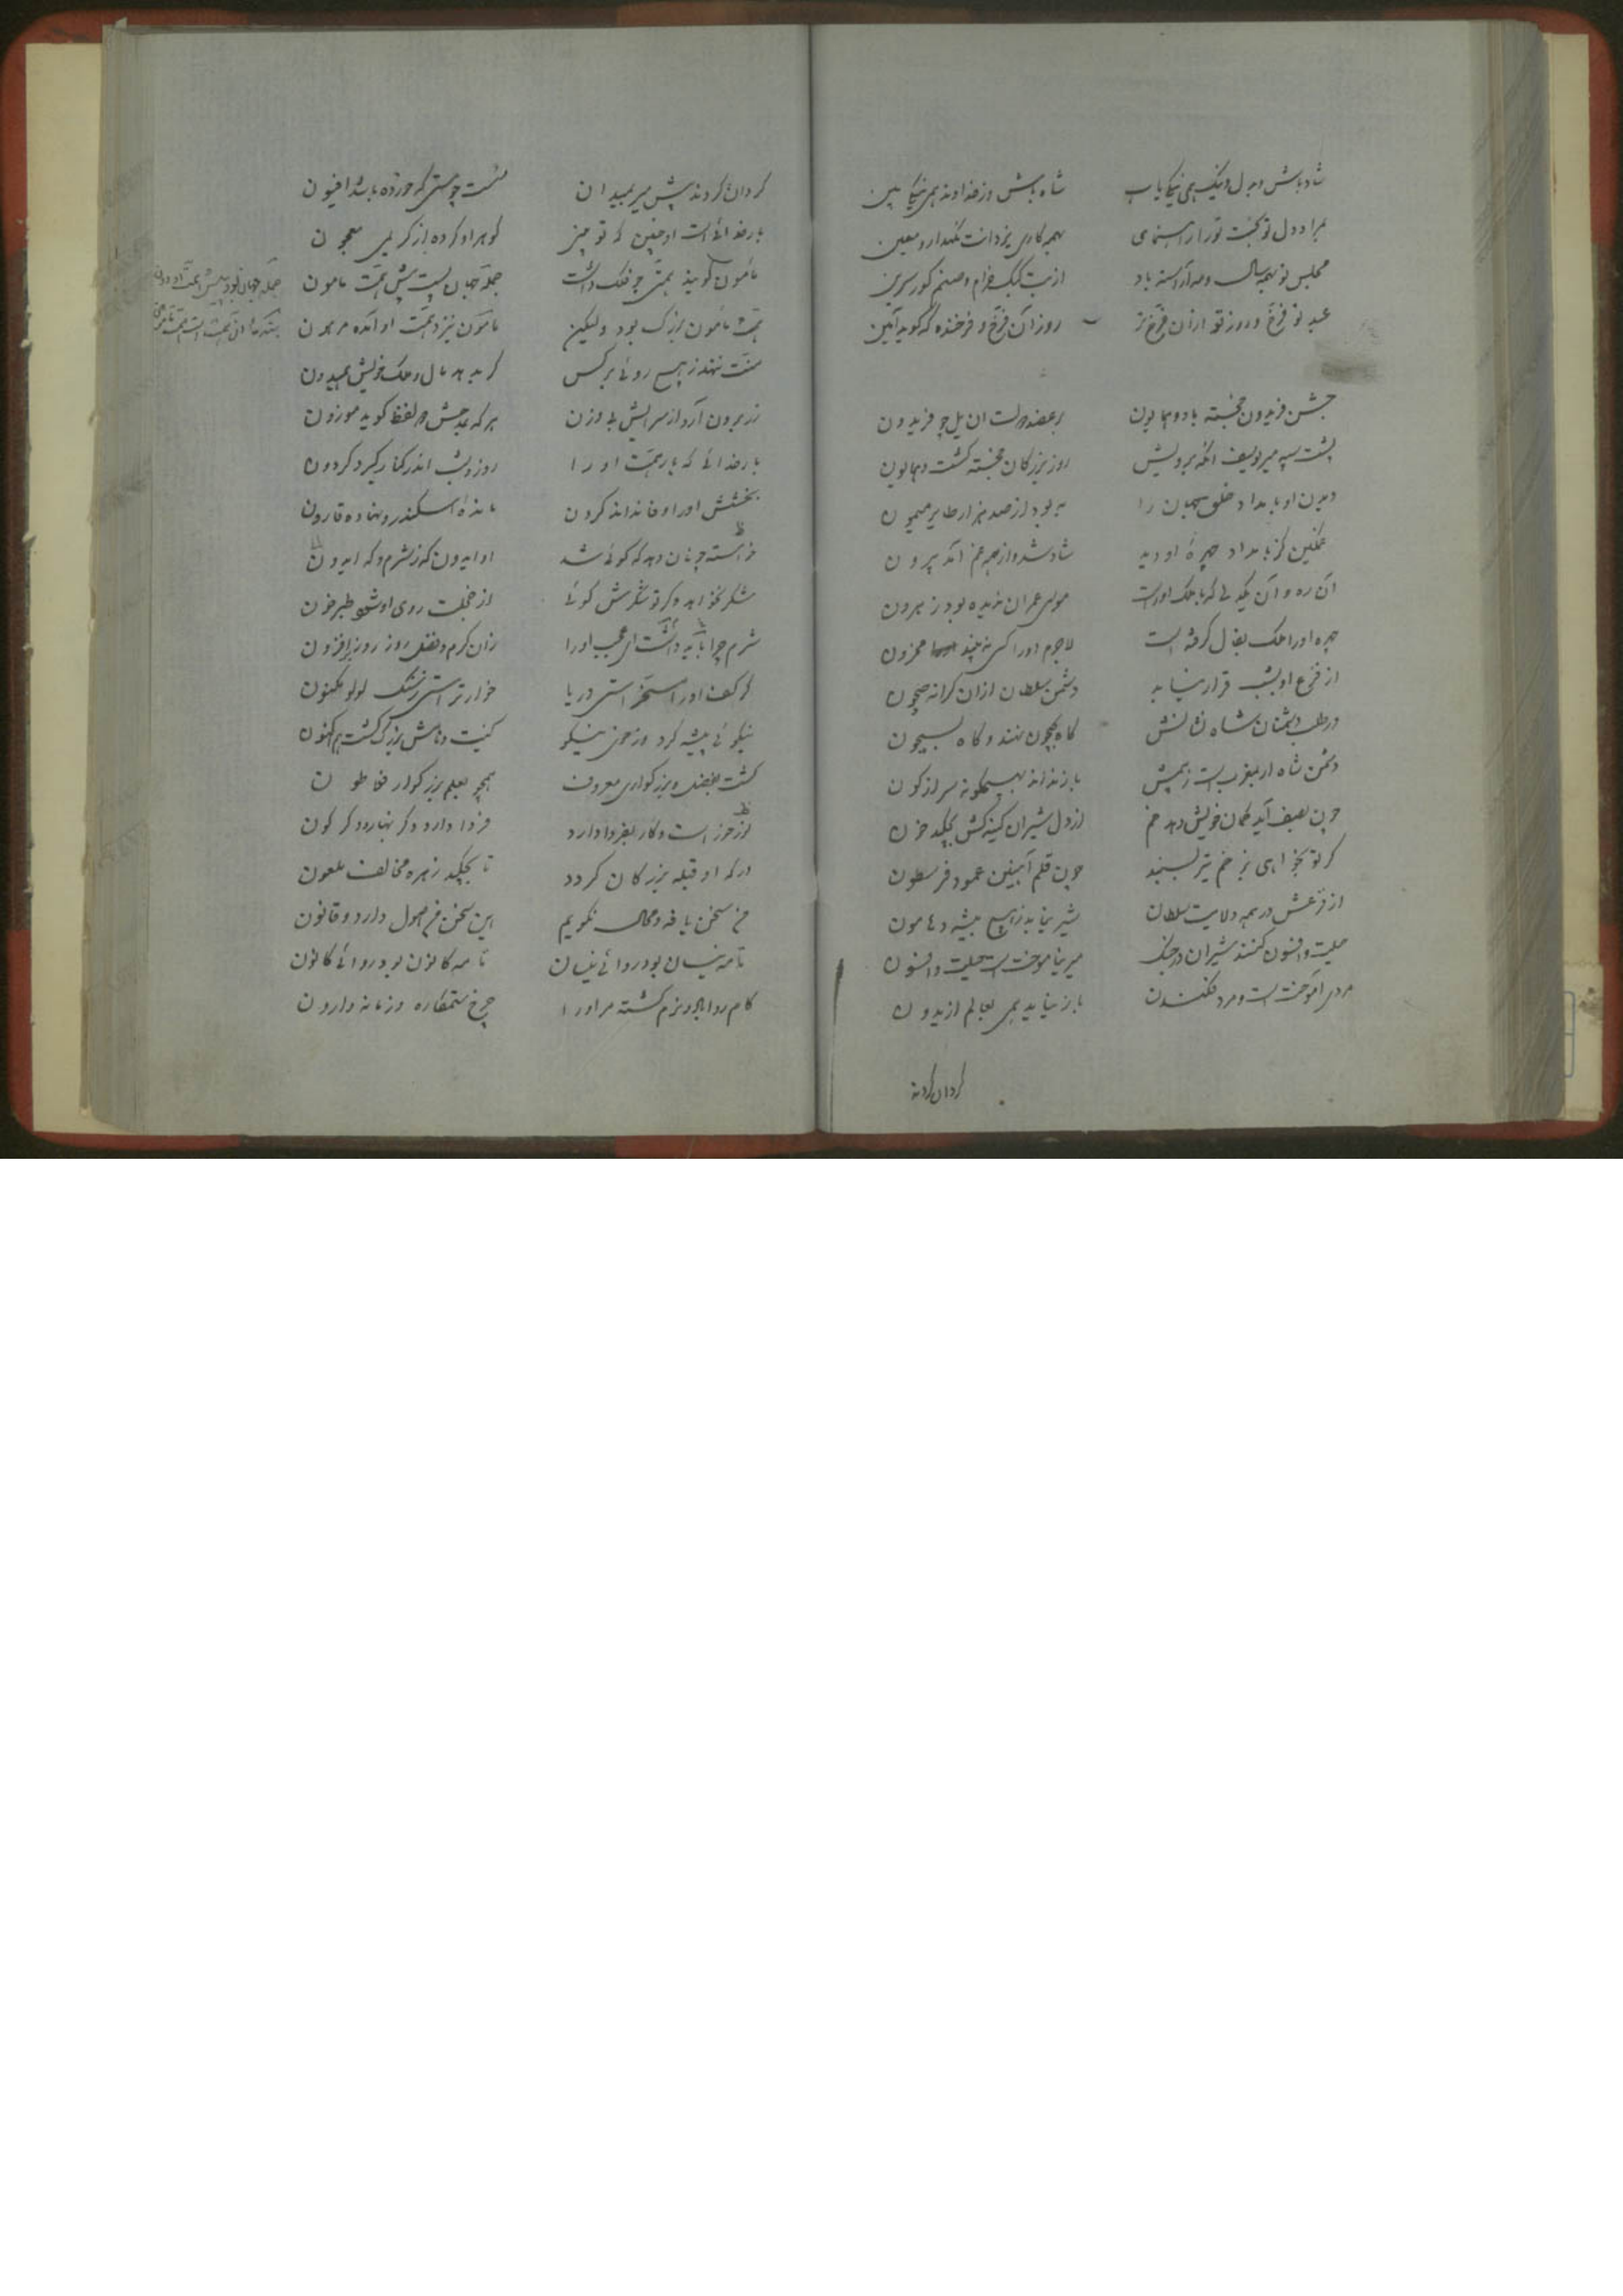 شاد باش و بدل نیک همی نیکی یاب شاه باش وز خداوند همی نیکی بین
مراد دل تو بخت تو را راهنمای بهمه کاری یزدانت نگهدار و معین
مجلس تو بهمه سال و مه آراسته باد از بت کبک خرام و صنم گور سرین
عید تو فرخ و روز تو ازان فرخ تر روز آن فرخ و فرخنده که گوید آمین
جشن فریدون خجسته باد و همایون بر عضد دولت آن یل چو فریدون
پشت سپه میر یوسف آنکه برویش روز بزرگان خجسته گشت و همایون
دیدن او بامداد خلق جهان را به بود از صد هزار طایر میمون
غمگین کز بامداد چهره او دید شاد شد و از همه غم آمد بیرون
آن ره و آن یکدلی که با ملک اوراست موسی عمران ندیده بود ز هرون
چهره او را ملک بفال گرفته است لاجرم او را کسی نبیند محزون
از فزع او بشب قرار نیابد دشمن سلطان ازان کرانه جیحون
در طلب دشمنان شاه نشانش گاه بجیحون نهند و گاه بسیحون
دشمن شاه ار بمغربست ز بیمش باز نداند بهیچگونه سر از کون
چون بصف آید کمان خویش دهد خم از دل شیران کینه کش بچکد خون
گر تو بخواهی بزخم تیر بسنبد چون قلم آهنین عمود فرسطون
از فزعش در همه ولایت سلطان شیر نیابد ز هیچ بیشه و هامون
حیلت و افسون کنند شیران در جنگ میر نیاموختست حیلت و افسون
مردی آموختست و مرد فکندن باز نیاید همی بعالم ازیدون
گردان گردند
گردان گردند پیش میر بمیدان مست چو مستی که خورده باشد افیون
بار خدائیست او چنین که تو بینی گوهر او کرده از کریمی معجون
مأمون گویند همتی چو فلک داشت جمله جهان پست پیش همت مأمون
همت مأمون بزرگ بود ولیکن مأمون نزد همت او آمده مرهون
منت ننهد ز هیچ روئی بر کس گر بدهد مال و ملک خویش همیدون
زر برون آرد از سرایش بی وزن هر که بمدحش دو لفظ گوید موزون
بار خدائی که بار همت او را روز و شب اندر کنار گیرد گردون
بخشش او را وفا نداند کردن مانده اسکندر و نهاده قارون
خواسته چونان دهد که گوئی شد او ایدون که ز شرم و که ایدون
شکر نخواهد وگر تو شکرش گوئی از خجلت روی او شود طبرخون
شرم چرا باید داشت ای عجب او را زان کرم و فضل روز روز بر افزون
گر کف او را مسخر استی دریا خوارتر استی ز سنگ لولو مکنون
نیکوئی پیشه کرد وز خوی نیکو کنیت و نامش بزرگ گشت هم اکنون
گشت بفضل و بزرگواری معروف همچو بعلم بزرگوار فلاطون
امروز است و کار بفردا دارد فردا دارد دگر نهاد و دگر گون
درگه او قبله بزرگان گردد تا بچکد زهره مخالف ملعون
من سخن یافه و محال نگویم این سخن من اصول دارد و قانون
تا مه نیسان بود روائی نیسان تا مه کانون بود روائی کانون
کام روا باد و نرم گشته مر او را چرخ ستمکاره و زمانه وارون